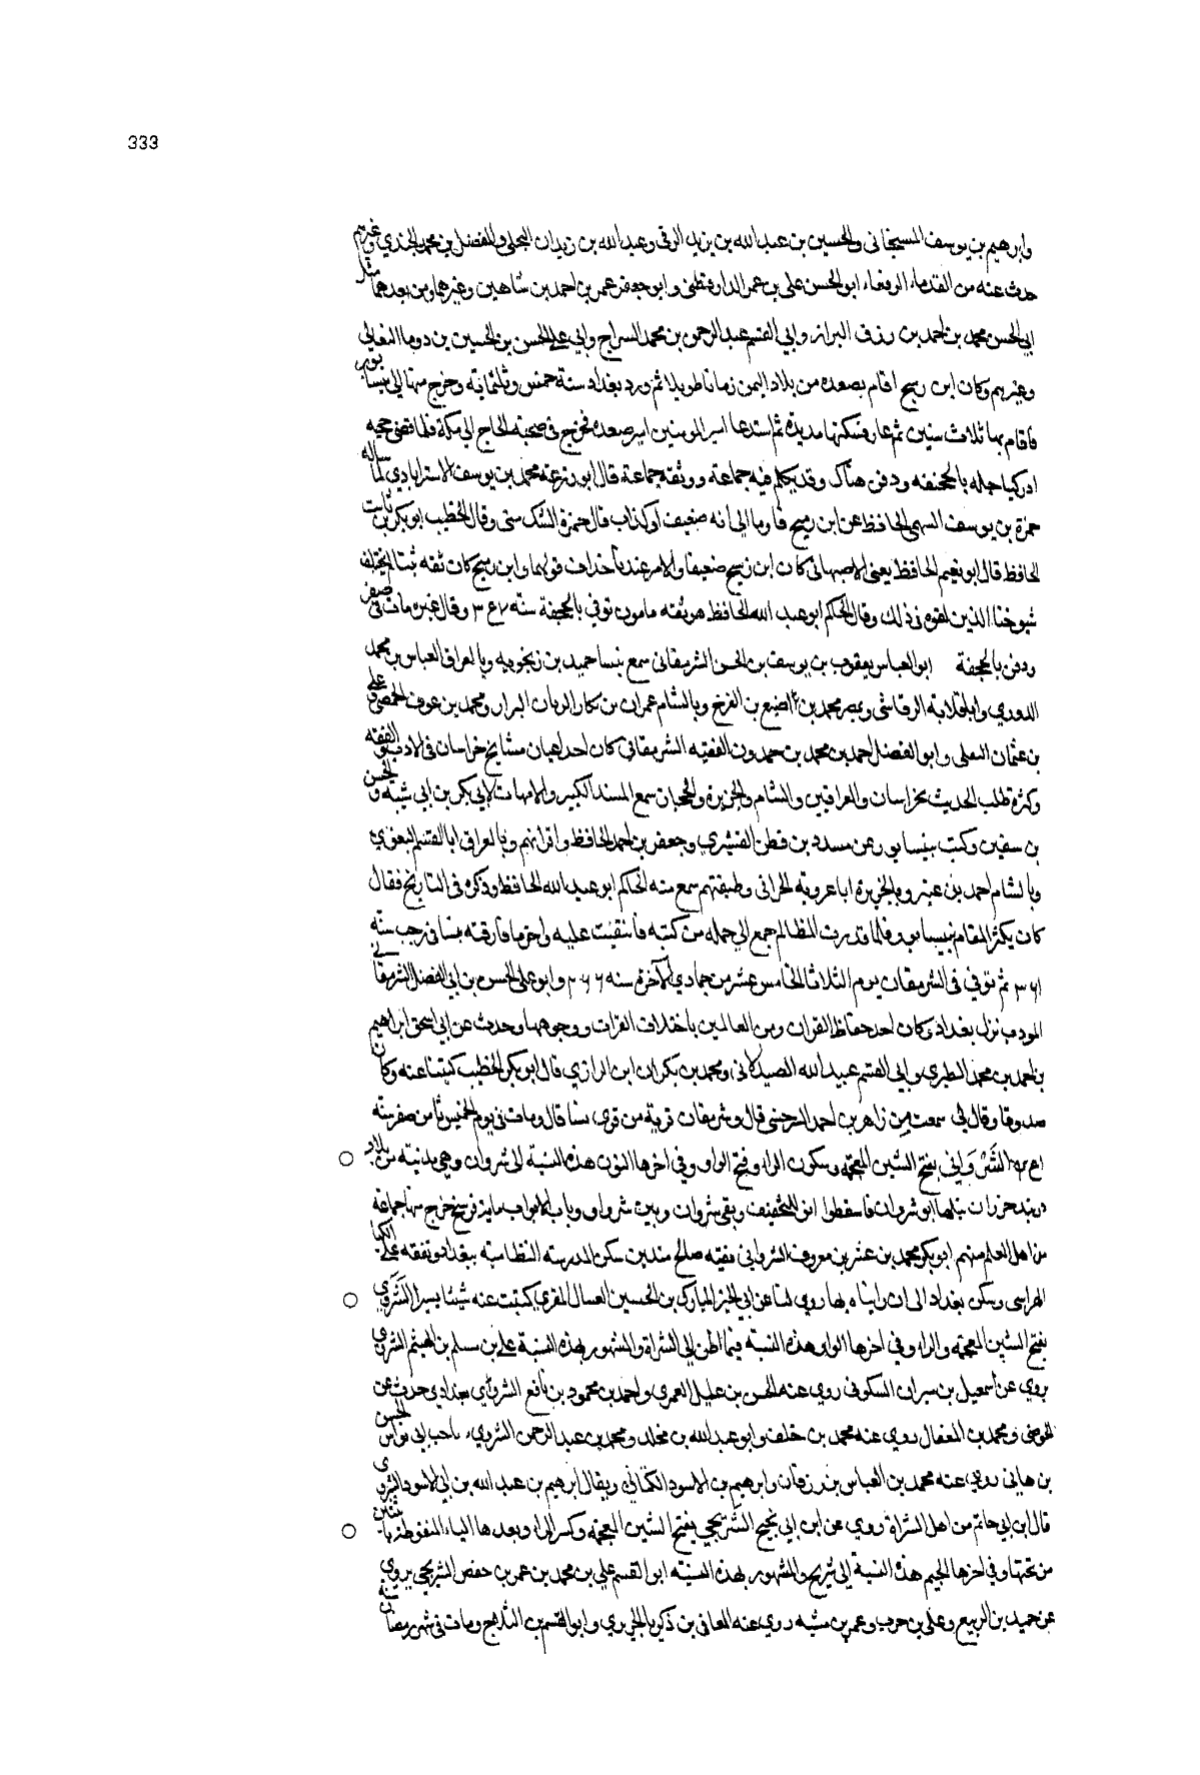 333
وابرهيم بن يوسف الهسنجاني والحسين بن عبد الله بن يزيد الرقي وعبد الله بن زيدان البجلي والمفضل بن محمد الجندي وغيرهم
حدث عنه من القدماء الرفعاء ابو الحسن علي بن عمر الدارقطني وابو حفص عمر بن احمد بن شاهين وغيرهما ومن بعدهما مثل
ابي الحسن محمد بن احمد بن رزق البزاز وابي القسم عبد الرحمن بن محمد السراج وابي علي الحسن بن الحسين بن دوما النعالي
وغيرهم وكان ابن رميح اقام بصعده من بلاد اليمن زمانا طويلا ثم ورد بغداد سنة خمس وثلثمائة وخرج منها الى نيسابور
فاقام بها ثلاث سنين ثم عاد فسكنها مديدة ثم استدعا امير المومنين امير صعده فخرج في صحبة الحاج الى مكة فلما قضى حجه
ادركه اجله بالجحفة ودفن هناك وقد تكلم فيه جماعة ووثقه جماعة قال ابو زرعة محمد بن يوسف الاسترابادي لما ساله
حمزة بن يوسف السهمي الحافظ عن ابن رميح فاوما الى انه ضعيف او كذاب قال حمزة الشك مني وقال الخطيب ابو بكر بن ثابت
الحافظ قال ابو نعيم الحافظ يعني الاصبهاني كان ابن رميح ضعيفا والامر عندنا بخلاف قولهما وابن رميح كان ثقه ثبتا لم يختلف
شيوخنا الذين لقوه في ذلك وقال الحاكم ابو عبد الله الحافظ هو ثقه مامون توفي بالجحفة سنه ٣٥٧ وقال غيره مات في صفر
ودفن بالجحفة ابو العباس يعقوب بن يوسف بن الحسن الشرمقاني سمع بنسا حميد بن زنجويه وبالعراق العباس بن محمد
الدوري وابا قلابة الرقاشي وبمصر محمد بن اصبغ بن الفرج وبالشام عمران بن بكار البراد ومحمد بن عوف الحمصي علي
بن عثمان النفلي وابو الفضل احمد بن محمد بن حمدون الفقيه الشرمقاني كان احد اعيان مشايخ خراسان في الادب والفقه
وكثرة طلب الحديث بخراسان والعراقين والشام والجزيرة والحجاز سمع المسند الكبير والامهات لابي بكر بن ابي شيبة و الحسن
بن سفين وكتب بنيسابور عن مسدد بن قطن القشيري وجعفر بن احمد الحافظ واقرانهم وبالعراق ابا القسم البغوي
وبالشام احمد بن عمير وبالجزيرة ابا عروبة الحراني وطبقتهم سمع منه الحاكم ابو عبد الله الحافظ وذكره في التاريخ فقال
كان يكثر المقام بنيسابور فلما قدرت المظالم جمع الي جمله من كتبه فانتقيت عليه واخر ما فارقته بنسا في رجب سنة
٣٦١ ثم توفي في الشرمقان يوم الثلاثا الخامس عشر من جمادي الاخرة سنه ٣٦٦ وابو علي الحسن بن ابي الفضل الشرمقاني
المودب نزل بغداد وكان احد حفاظ القران ومن العالمين باختلاف القرات ووجوهها وحدث عن ابي اسحق ابراهيم
بن احمد بن محمد الطبري وابي القسم عبيد الله الصيدلاني ومحمد بن بكران ابن الرازي قال ابو بكر الخطيب كتبنا عنه وكان
صدوقا وقال لي سمعت من زاهر بن احمد السرخسي قال وشرمقان قرية من قرى نسا قال ومات في يوم الخميس ثامن صفر سنة
٤٥١ الشَّرْوَاني بفتح الشين المعجمة وسكون الراء وفتح الواو وفي اخرها النون هذه النسبة الى شروان وهي مدينة من بلاد
دربند خزران بناها انوشروان فاسقطوا انو للتخفيف وبقي شروان وبين شروان وباب الابواب ماية فرسخ خرج منها جماعة
من اهل العلم منهم ابو بكر محمد بن عشير بن معروف الشرواني فقيه صالح متدين سكن المدرسة النظامية ببغداد وتفقه على الكيا
الهراسي وسكن بغداد الى ان راينا ه بها روى لنا عن ابي الخير المبارك بن الحسين العسال المقري كتبت عنه شيئا يسيرا الشَّرَوي
بفتح الشين المعجمة والراء وفي اخرها الواو هذه النسبة فيما اظن الى الشراة والمشهور بهذه النسبة علي بن مسلم بن الهيثم الشروي
يروي عن اسمعيل بن مهران السكوني روى عنه الحسن بن عليل العمري واحمد بن محمود بن نافع الشروي بغدادي حدث عن
الحوضي ومحمد بن المعفال روى عنه محمد بن خلف وابو عبد الله بن مخلد ومحمد بن عبد الرحمن الشروي صاحب ابي نواس الحسن
بن هاني روى عنه محمد بن العباس بن زرقان وابرهيم بن الاسود الكناني ويقال ابرهيم بن عبد الله بن ابي الاسود الشروي
قال ابن ابي حاتم من اهل الشراة روى عن ابن ابي نجيح الشَّريجي بفتح الشين المعجمة وكسر الراء وبعدها الياء المنقوطة باثنتين
من تحتها وفي اخرها الجيم هذه النسبة الى شريج والمشهور بهذه النسبة ابو القسم علي بن محمد بن عمر بن حفص الشريجي يروي
عن حميد بن الربيع وعلي بن حرب وعمر بن شبه روى عنه المعافى بن زكريا الجريري وابو القسم بن الثلاج ومات في شهر رمضان سنة